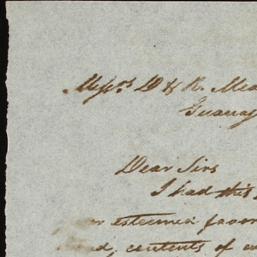 Messrs D & R. Mea
Guanaj
Dear Sirs
I had this
esteemed favor
contents of